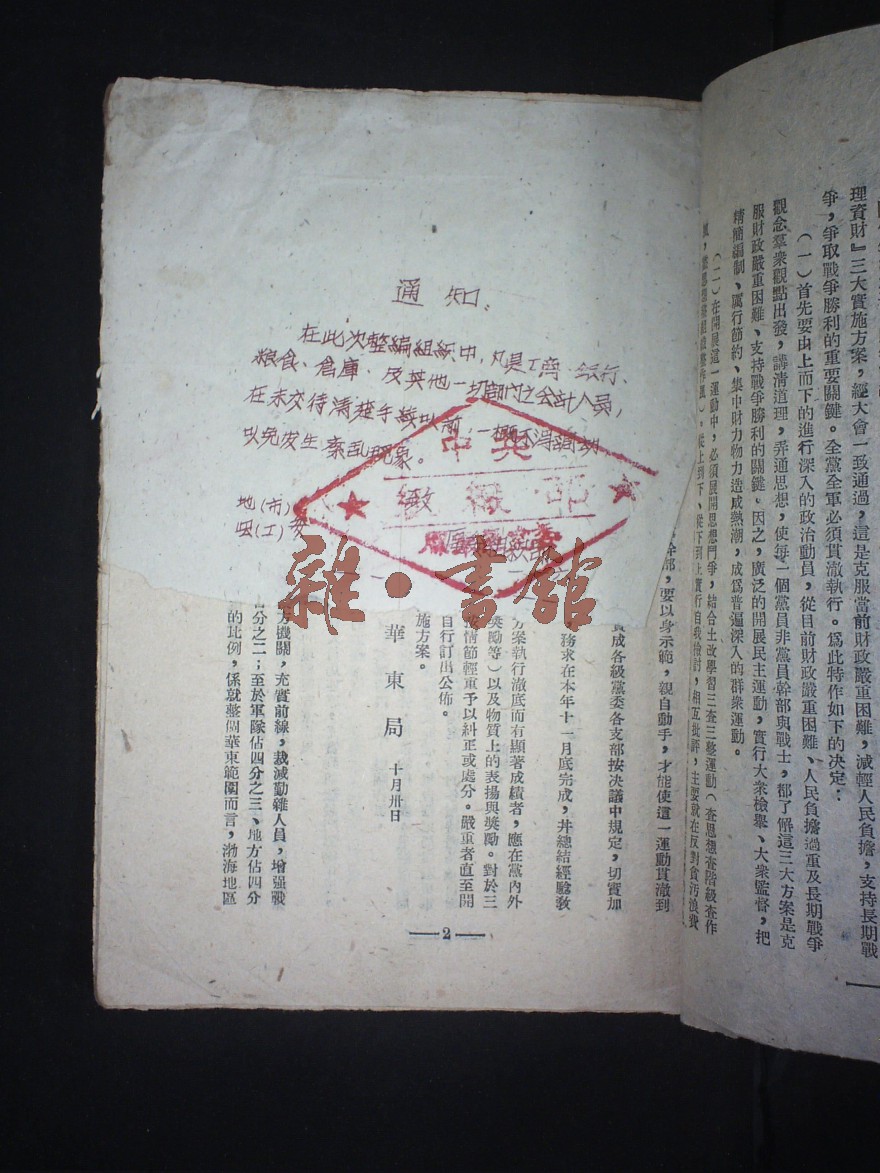 理資財』三大實施方案，經大會一致通過，這是克服當前財政嚴重困難，減輕人民負擔，支持長期戰
爭，爭取戰爭勝利的重要關鍵。全黨全軍必須貫澈執行。爲此特作如下的决定：
（一）首先要由上而下的進行深入的政治動員，從目前財政嚴重困難、人民負擔過重及長期戰爭
觀念羣衆觀點出發，講清道理，弄通思想，使每一個黨員非黨員幹部與戰士，都了解這三大方案是克
服財政嚴重困難、支持戰爭勝利的關鍵。因之，廣泛的開展民主運動，實行大衆檢舉、大衆監督，把
精簡編制、厲行節約、集中財力物力造成熱潮，成爲普遍深入的群衆運動。
（二）在開展這一運動中，必須展開思想鬥爭，結合土改學習三查三整運動（查思想查階級查作
從上到下、從下到上實行自我檢討，相互批評，主要就在反對貪汚浪費
幹部，要以身示範，親自動手，才能使這一運動貫澈到
責成各級黨委各支部按决議中規定，切實加
務求在本年十一月底完成，并總結經驗敎
方案執行澈底而有顯著成績者，應在黨內外
獎勵等）以及物質上的表揚與獎勵。對於三
按情節輕重予以糾正或處分。嚴重者直至開
自行訂出公佈。
施方案。
華東局
十月卅日
方機關，充實前線，裁減勤雜人員，增强戰
百分之二；至於軍隊佔四分之三、地方佔四分
的比例，係就整個華東範圍而言，渤海地區
—2—
通知
在此次整編組織中，凡是工商、銀行、
粮食、倉庫、及其他一切部門之会計人員，
在未交待清楚手续以前，一概不得調動
以免发生紊乱现象。
地(市)
致
县(工)委
組織部
雜·書館